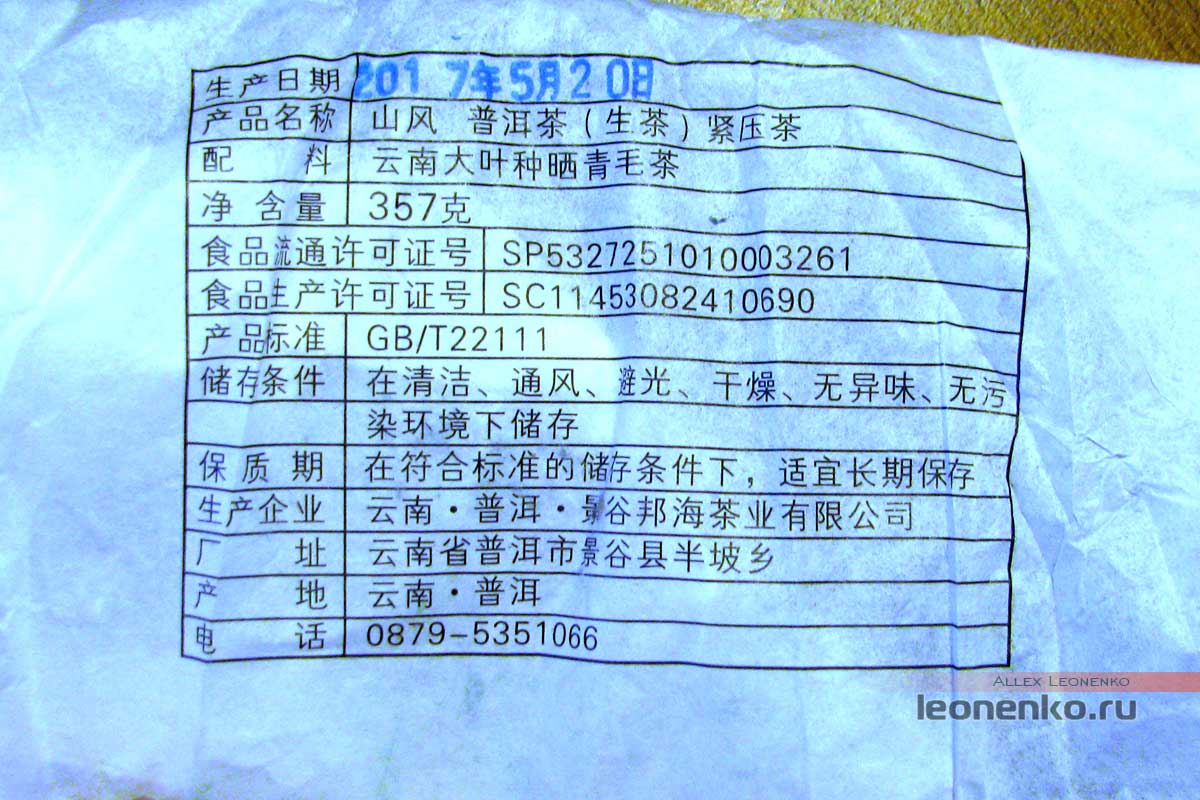 生产日期 2017年5月20日
产品名称 山风 普洱茶（生茶）紧压茶
配料 云南大叶种晒青毛茶
净含量 357克
食品流通许可证号 SP5327251010003261
食品生产许可证号 SC11453082410690
产品标准 GB/T22111
储存条件 在清洁、通风、避光、干燥、无异味、无污
染环境下储存
保质期 在符合标准的储存条件下，适宜长期保存
生产企业 云南·普洱·景谷邦海茶业有限公司
厂址 云南省普洱市景谷县半坡乡
产地 云南·普洱
电话 0879-5351066
Allex Leonenko
leonenko.ru